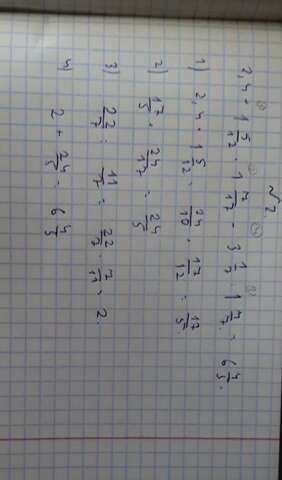 №2.
2,4 · 1 5/12 · 1 7/17 + 3 1/7 : 1 4/7 = 6 4/5.
1) 2,4 · 1 5/12 = 24/10 · 17/12 = 17/5.
2) 17/5 · 24/17 = 24/5
3) 22/7 : 11/7 = 22/7 · 7/11 = 2.
4) 2 + 24/5 = 6 4/5